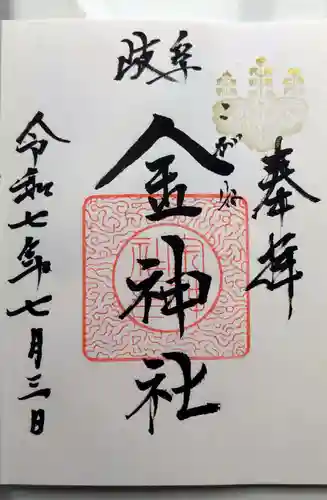 奉拝
岐阜
こがね
金神社
令和七年七月三日